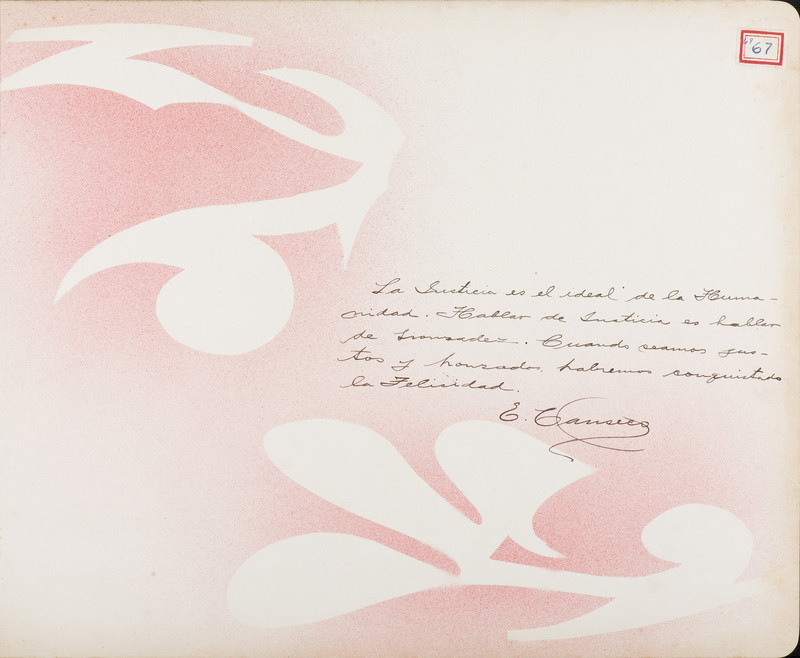 67
La Justicia es el ideal de la Huma-
nidad. Hablar de Justicia es hablar
de Honradez. Cuando seamos jus-
tos y honrados, habremos conquistado
la Felicidad.
E. Canseco